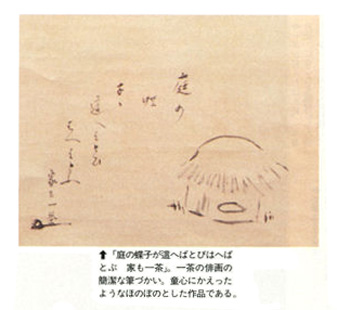 庭の
蝶
子が
這へばとび
はへばとぶ
家も一茶
⬆「庭の蝶子が這へばとびはへば
とぶ 家も一茶」。一茶の俳画の
簡潔な筆づかい。童心にかえった
ようなほのぼのとした作品である。